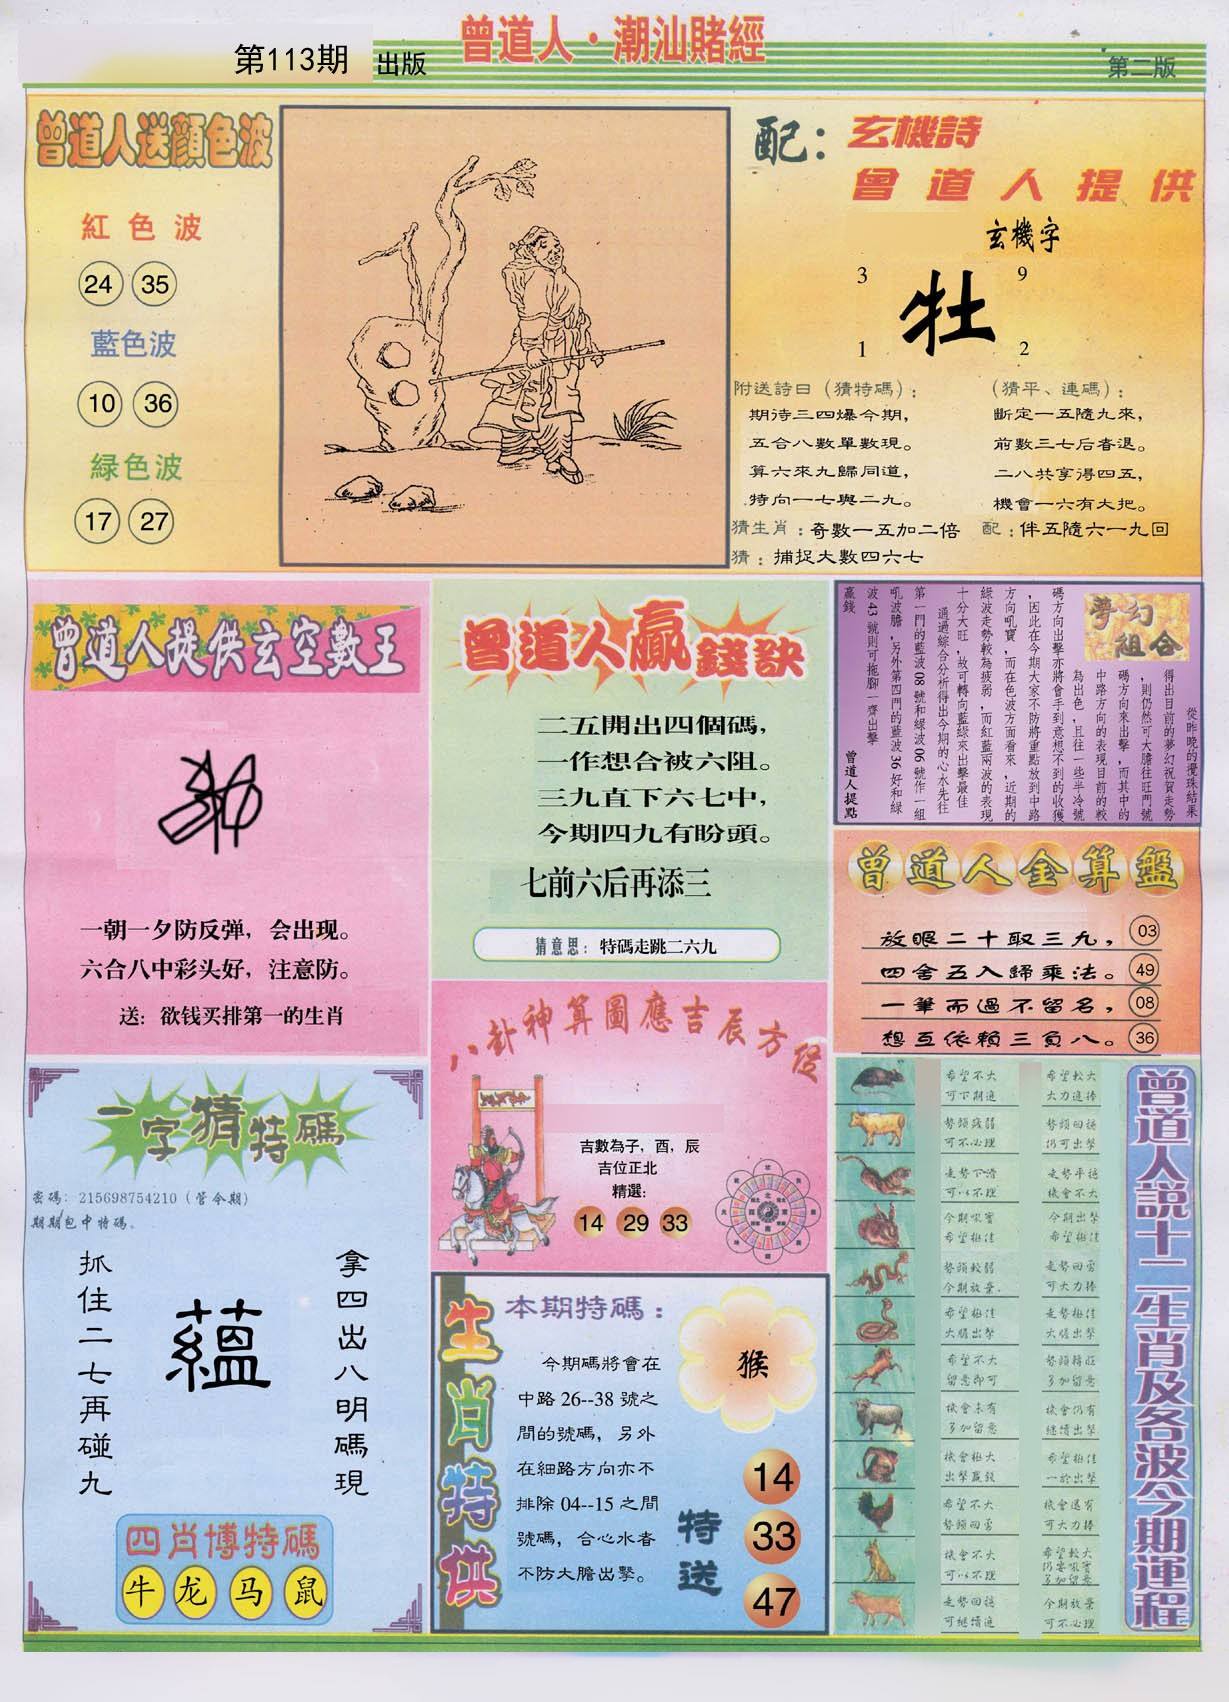 第113期 出版
曾道人·潮汕賭經
第二版
曾道人送顏色波
紅色波
24 35
藍色波
10 36
緑色波
17 27
配：玄機詩
曾道人提供
玄機字
3 9
牡
1 2
附送詩曰（猜特碼）：
期待三四爆今期，
五合八數單數現。
算六來九歸同道，
特向一七與二九。
（猜平、連碼）：
斷定一五隨九來，
前數三七后者退。
二八共享得四五，
機會一六有大把。
猜生肖：奇數一五加二倍
配：伴五隨六一九回
猜：捕捉大數四六七
曾道人提供玄空數王
一朝一夕防反弹，会出现。
六合八中彩头好，注意防。
送：欲钱买排第一的生肖
曾道人贏錢訣
二五開出四個碼，
一作想合被六阻。
三九直下六七中，
今期四九有盼頭。
七前六后再添三
猜意思：特碼走跳二六九
夢幻組合
從昨晚的攪珠結果
得出目前的夢幻祝賀走勢
，則仍然可大膽往旺門號
碼方向來出擊，而其中的
中路方向的表現目前的較
為出色，且往一些半冷號
碼方向出擊亦將會手到意想不到的收獲
，因此在今期大家不防將重點放到中路
方向吼寶，而在色波方面看來，近期的
綠波走勢較為疲弱，而紅藍兩波的表現
十分大旺，故可轉向藍綠來出擊最佳
通過綜合分析得出今期的心水先往
第一門的藍波08號和綠波06號作一組
吼波膽，另外第四門的藍波36好和綠
波43號則可拖腳一齊出擊
贏錢
曾道人提點
曾道人金算盤
放眼二十取三九， 03
四舍五入歸乘法。 49
一筆而過不留名， 08
想互依賴三負八。 36
八卦神算圖應吉辰方位
吉數為子，酉，辰
吉位正北
精選：
14 29 33
一字猜特碼
密碼：215698754210（管令期）
期期包中特碼。
拿四出八明碼現
蘊
抓住二七再碰九
四肖博特碼
牛 龙 马 鼠
生肖特供
本期特碼：
猴
今期碼將會在
中路26--38號之
間的號碼，另外
在細路方向亦不
排除04--15之間
號碼，合心水者
不防大膽出擊。
特送
14
33
47
曾道人説十二生肖及各波今期運程
希望不大
可下期追
希望較大
大力追捧
勢頭殘弱
可不必理
勢頭回穩
仍可出擊
走勢下滑
可以不理
走勢平穩
機會不大
今期吼實
希望極佳
今期出擊
希望極佳
勢頭較弱
今期放棄.
走勢回勇
可大力捧
希望極佳
大膽出擊
走勢極佳
大膽出擊
希望不大
留意即可
勢頭轉旺
多加留意
機會未有
多加留意
機會仍有
繼續出擊
機會極大
出擊贏錢
希望極佳
一於出擊
希望不大
勢頭回勇
機會還有
可大力捧
機會不大
可以不理
希望較大
仍要吼實
多加留意
走勢回穩
可繼續追
今期放棄
可不必理